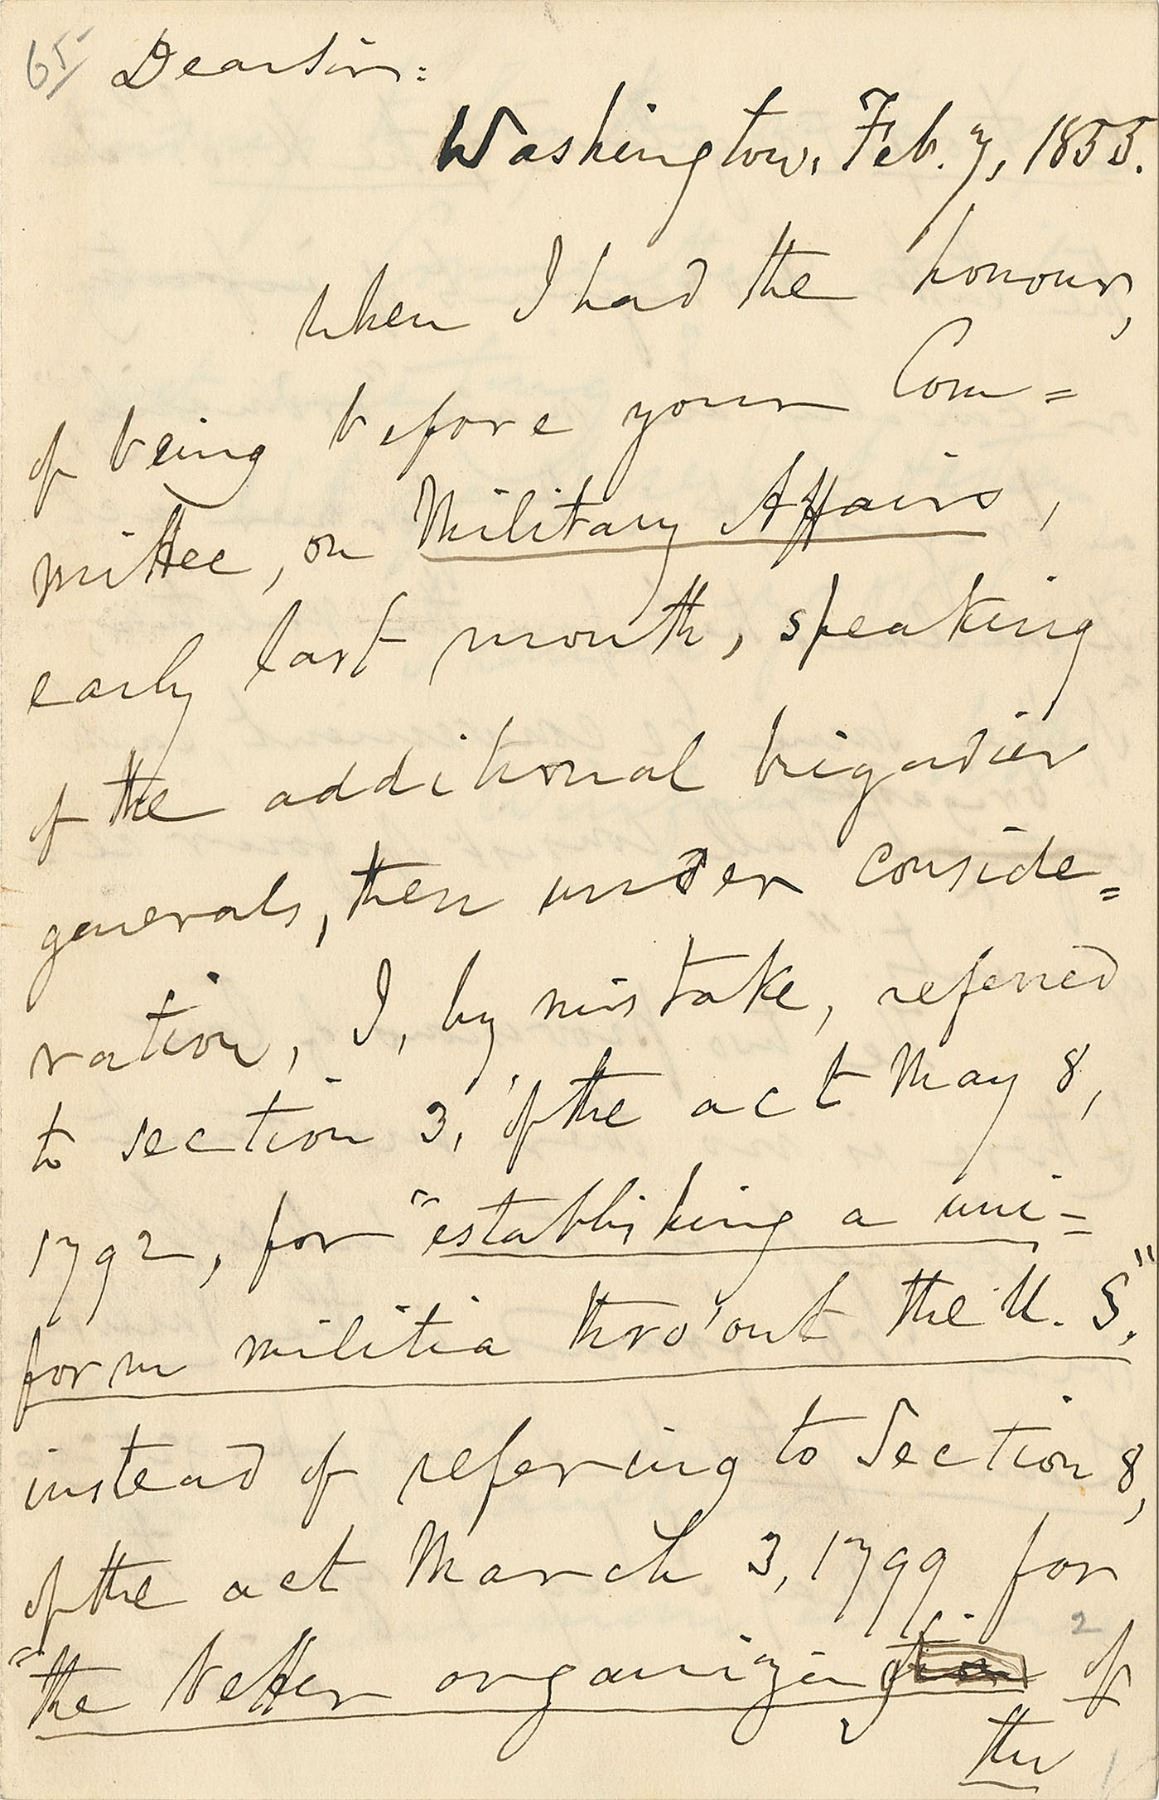 65
Dear Sir:
Washington, Feb. 7, 1855.
When I had the honour,
of being before your Com=
mittee, on Military Affairs,
early last month, speaking
of the additional brigadier
generals, then under conside=
ration, I, by mistake, referred
to section 3, of the act May 8,
1792, for "establishing a uni=
form militia thro'out the U. S."
instead of refering to Section 8,
of the act March 3, 1799 for
"the better organizing of
2
the